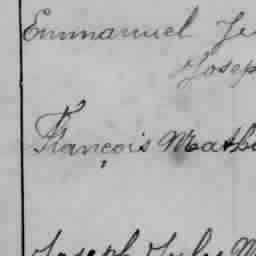 Emmanuel Je
Joseph
François Math
Joseph July M